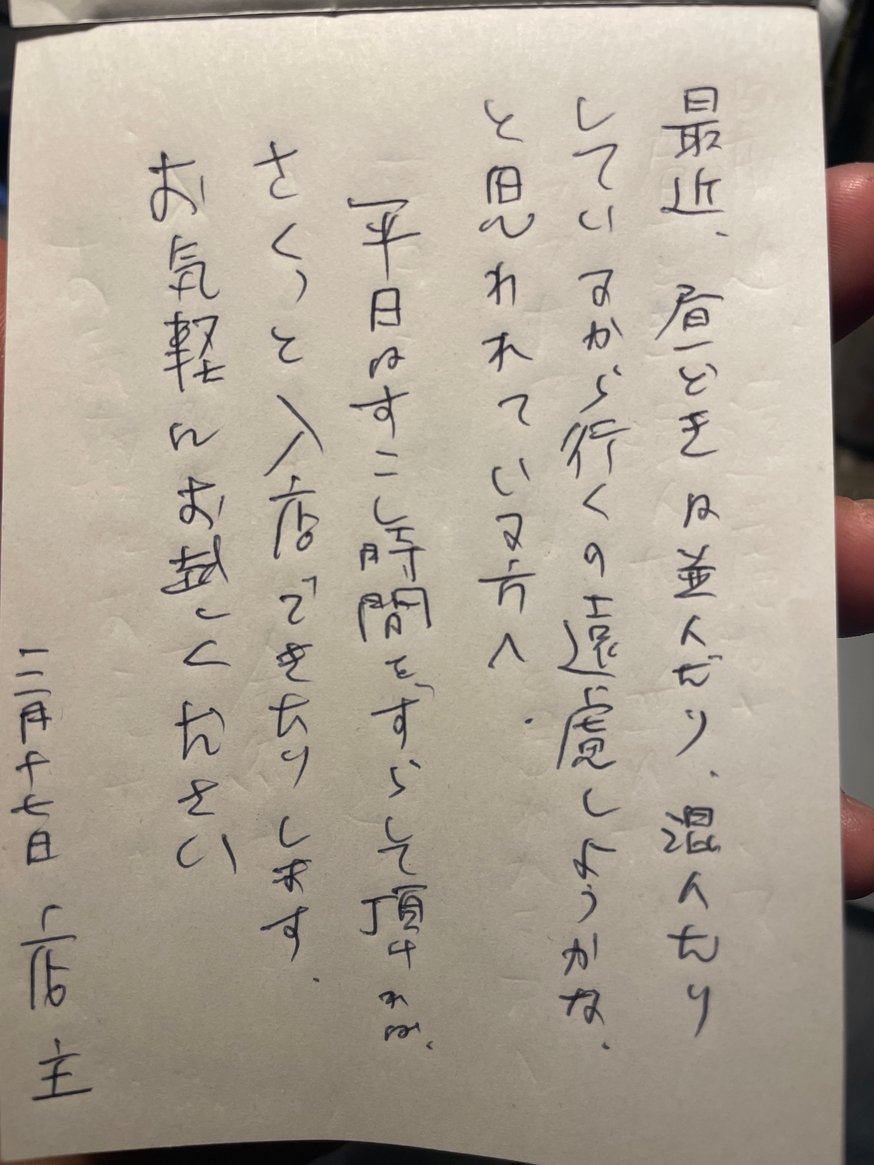 最近、昼どきは並んだり、混んだり
しているから行くの遠慮しようかな、
と思われている方へ、
平日はすこし時間をずらして頂ければ、
さくっと入店できたりします、
お気軽にお越しください
十二月十七日 店主